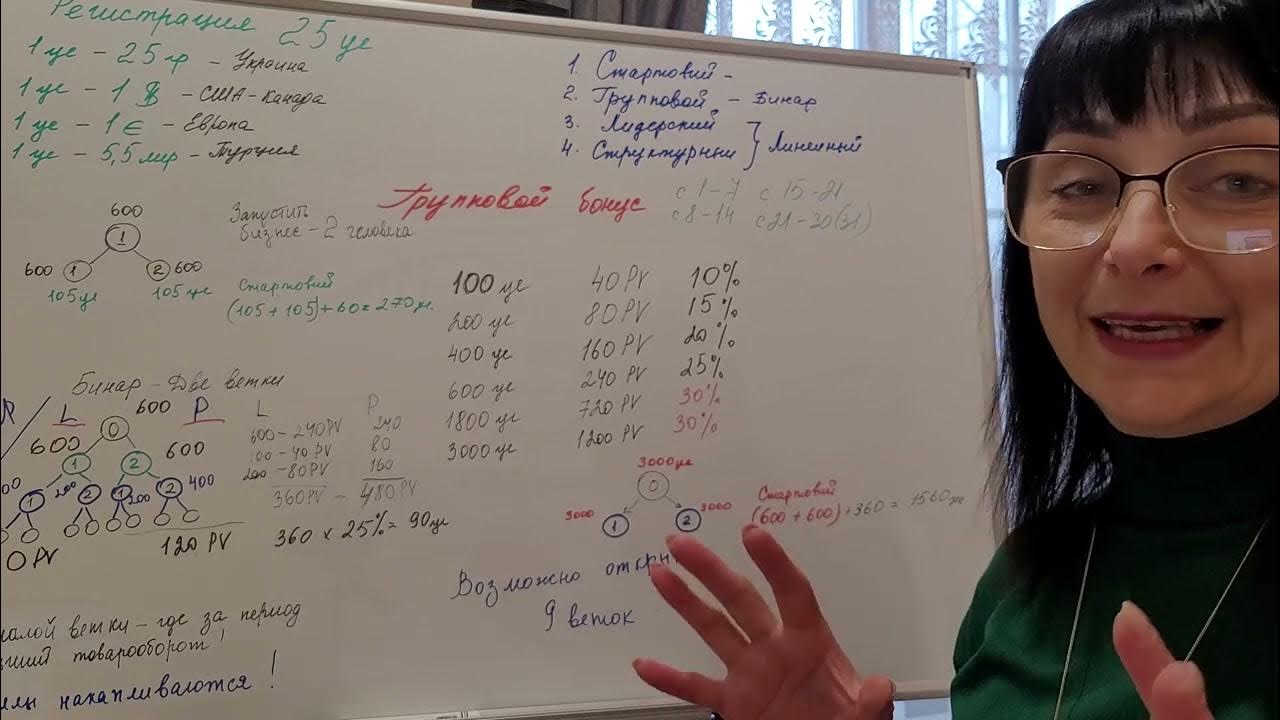 Регистрация 25 уе
1 уе - 25 гр - Украина
1 уе - 1 $ - США-Канада
1 уе - 1 € - Европа
1 уе - 5,5 лир - Турция
1. Стартовий -
2. Групповой - Бинар
3. Лидерский
4. Структурный } Линейный
Групповой бонус
с 1-7 с 15-21
с 8-14 с 21-30(31)
600
1
600 1 2 600
105 уе 105 уе
Запустить
бизнес - 2 человека
Стартовий
(105 + 105) + 60 = 270 уе.
100 уе 40 PV 10%
200 уе 80 PV 15%
400 уе 160 PV 20%
600 уе 240 PV 25%
1800 уе 720 PV 30%
3000 уе 1200 PV 30%
Бинар - Две ветки
Л 600 П
0
600 600
1 2
1 200 2 1 200 2 400
120 PV
0 PV
L P
600 - 240 PV 240
100 - 40 PV 80
200 - 80 PV 160
360 PV - 480 PV
360 x 25% = 90 уе
3000 уе
0
3000 1 2 3000
Стартовий
(600 + 600) + 360 = 1560 уе
Возможно
9 веток
малой ветки - где за период
товарооборот!
накапливаются!